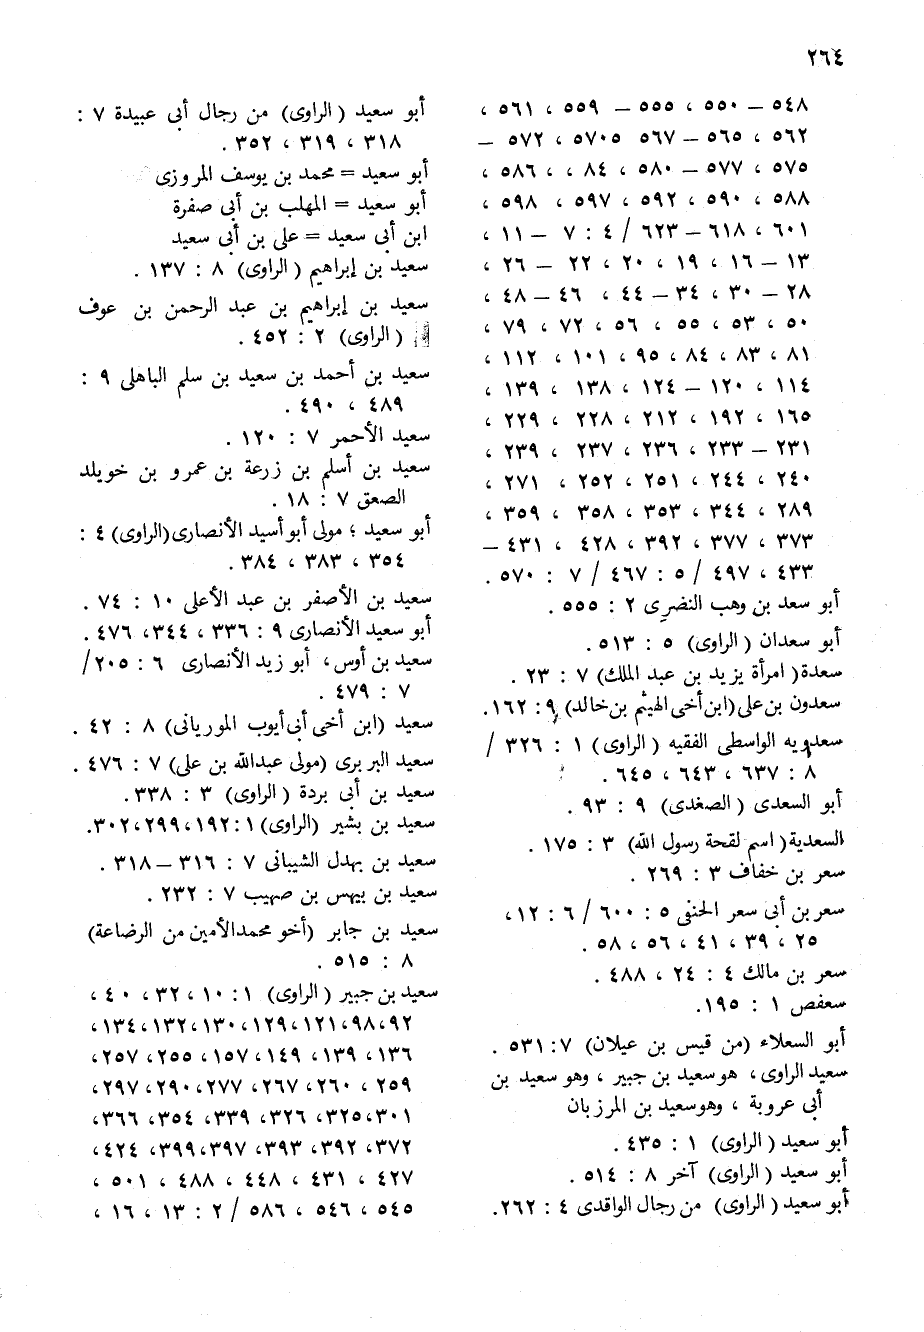 ٢٦٤
٥٤٨ – ٥٥٠ ، ٥٥٥ – ٥٥٩ ، ٥٦١ ،
٥٦٢ ، ٥٦٥ – ٥٦٧ ٥٧٠٥ ، ٥٧٢ –
٥٧٥ ، ٥٧٧ – ٥٨٠ ، ٨٤ ، ، ٥٨٦ ،
٥٨٨ ، ٥٩٠ ، ٥٩٢ ، ٥٩٧ ، ٥٩٨ ،
٦٠١ ، ٦١٨ – ٦٢٣ / ٤ : ٧ – ١١ ،
١٣ – ١٦ ، ١٩ ، ٢٠ ، ٢٢ – ٢٦ ،
٢٨ – ٣٠ ، ٣٤ – ٤٤ ، ٤٦ – ٤٨ ،
٥٠ ، ٥٣ ، ٥٥ ، ٥٦ ، ٧٢ ، ٧٩ ،
٨١ ، ٨٣ ، ٨٤ ، ٩٥ ، ١٠١ ، ١١٢ ،
١١٤ ، ١٢٠ – ١٢٤ ، ١٣٨ ، ١٣٩ ،
١٦٥ ، ١٩٢ ، ٢١٢ ، ٢٢٨ ، ٢٢٩ ،
٢٣١ – ٢٣٣ ، ٢٣٦ ، ٢٣٧ ، ٢٣٩ ،
٢٤٠ ، ٢٤٤ ، ٢٥١ ، ٢٥٢ ، ٢٧١ ،
٢٨٩ ، ٣٤٤ ، ٣٥٣ ، ٣٥٨ ، ٣٥٩ ،
٣٧٣ ، ٣٧٧ ، ٣٩٢ ، ٤٢٨ ، ٤٣١ –
٤٣٣ ، ٤٩٧ / ٥ : ٤٦٧ / ٧ : ٥٧٠ .
أبو سعد بن وهب النضرى ٢ : ٥٥٥ .
أبو سعدان ( الراوى ) ٥ : ٥١٣ .
سعدة ( امرأة يزيد بن عبد الملك ) ٧ : ٢٣ .
سعدون بن على ( ابن أخى الهيثم بن خالد ) ٩ : ١٦٢ .
سعدويه الواسطى الفقيه ( الراوى ) ١ : ٣٢٦ /
٨ : ٦٣٧ ، ٦٤٣ ، ٦٤٥ .
أبو السعدى ( الصغدى ) ٩ : ٩٣ .
السعدية ( اسم لقحة رسول الله ) ٣ : ١٧٥ .
سعر بن خفاف ٣ : ٢٦٩ .
سعر بن أبى سعر الحنفى ٥ : ٦٠٠ / ٦ : ١٢ ،
٢٥ ، ٣٩ ، ٤١ ، ٥٦ ، ٥٨ .
سعر بن مالك ٤ : ٢٤ ، ٤٨٨ .
سعفص ١ : ١٩٥ .
أبو السعلاء ( من قيس بن عيلان ) ٧ : ٥٣١ .
سعيد الراوى ، هو سعيد بن جبير ، وهو سعيد بن
أبى عروبة ، وهو سعيد بن المرزبان
أبو سعيد ( الراوى ) ١ : ٤٣٥ .
أبو سعيد ( الراوى ) آخر ٨ : ٥١٤ .
أبو سعيد ( الراوى ) من رجال الواقدى ٤ : ٢٦٢ .
أبو سعيد ( الراوى ) من رجال أبى عبيدة ٧ :
٣١٨ ، ٣١٩ ، ٣٥٢ .
أبو سعيد = محمد بن يوسف المروزى
أبو سعيد = المهلب بن أبى صفرة
ابن أبى سعيد = على بن أبى سعيد
سعيد بن إبراهيم ( الراوى ) ٨ : ١٣٧ .
سعيد بن إبراهيم بن عبد الرحمن بن عوف
( الراوى ) ٢ : ٤٥٢ .
سعيد بن أحمد بن سعيد بن سلم الباهلى ٩ :
٤٨٩ ، ٤٩٠ .
سعيد الأحمر ٧ : ١٢٠ .
سعيد بن أسلم بن زرعة بن عمرو بن خويلد
الصعق ٧ : ١٨ .
أبو سعيد ؛ مولى أبو أسيد الأنصارى ( الراوى ) ٤ :
٣٥٤ ، ٣٨٣ ، ٣٨٤ .
سعيد بن الأصفر بن عبد الأعلى ١٠ : ٧٤ .
أبو سعيد الأنصارى ٩ : ٣٣٦ ، ٣٤٤ ، ٤٧٦ .
سعيد بن أوس ، أبو زيد الأنصارى ٦ : ٢٠٥ /
٧ : ٤٧٩ .
سعيد ( ابن أخى أبى أيوب الموريانى ) ٨ : ٤٢ .
سعيد البربرى ( مولى عبدالله بن على ) ٧ : ٤٧٦ .
سعيد بن أبى بردة ( الراوى ) ٣ : ٣٣٨ .
سعيد بن بشير ( الراوى ) ١ : ١٩٢ ، ٢٩٩ ، ٣٠٢ .
سعيد بن بهدل الشيبانى ٧ : ٣١٦ – ٣١٨ .
سعيد بن بيهس بن صهيب ٧ : ٢٣٢ .
سعيد بن جابر ( أخو محمد الأمين من الرضاعة )
٨ : ٥١٥ .
سعيد بن جبير ( الراوى ) ١ : ١٠ ، ٣٢ ، ٤٠ ،
٩٢ ، ٩٨ ، ١٢١ ، ١٢٩ ، ١٣٠ ، ١٣٢ ، ١٣٤ ،
١٣٦ ، ١٣٩ ، ١٤٩ ، ١٥٧ ، ٢٥٥ ، ٢٥٧ ،
٢٥٩ ، ٢٦٠ ، ٢٦٧ ، ٢٧٧ ، ٢٩٠ ، ٢٩٧ ،
٣٠١ ، ٣٢٥ ، ٣٢٦ ، ٣٣٩ ، ٣٥٤ ، ٣٦٦ ،
٣٧٢ ، ٣٩٢ ، ٣٩٣ ، ٣٩٧ ، ٣٩٩ ، ٤٢٤ ،
٤٢٧ ، ٤٣١ ، ٤٤٨ ، ٤٨٨ ، ٥٠١ ،
٥٤٥ ، ٥٤٦ ، ٥٨٦ / ٢ : ١٣ ، ١٦ ،